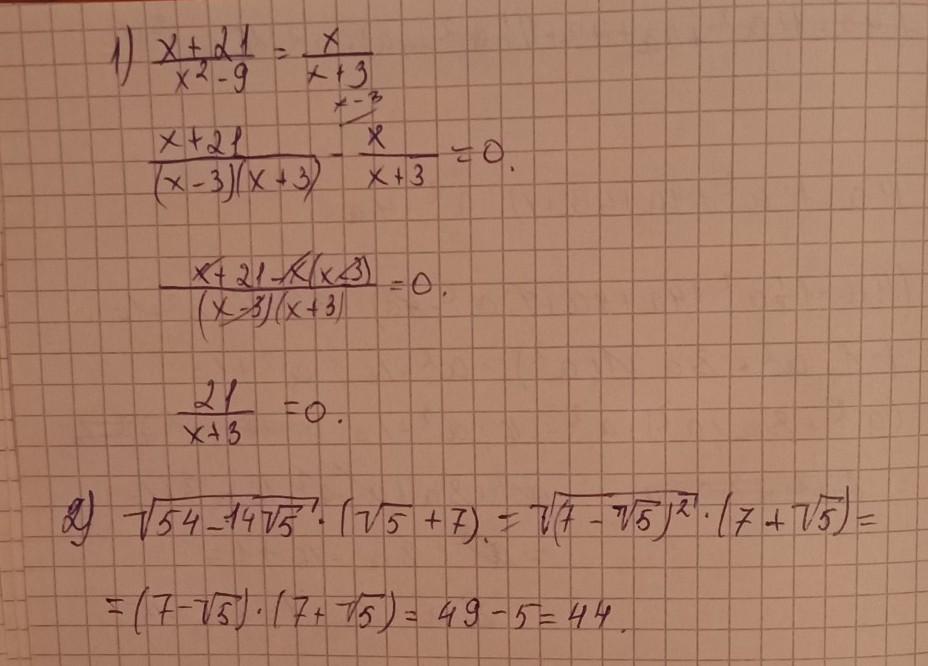 1) (x + 21)/(x² - 9) = x/(x + 3)
x - 3
(x + 21)/((x - 3)(x + 3)) - x/(x + 3) = 0.
(x + 21 - x(x - 3))/((x - 3)(x + 3)) = 0.
21/(x + 3) = 0.
2) √(54 - 14√5) · (√5 + 7) = √((7 - √5)²) · (7 + √5) =
= (7 - √5) · (7 + √5) = 49 - 5 = 44.